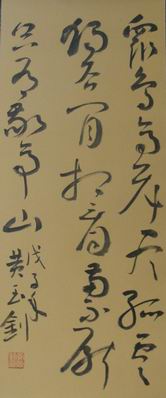 眾鳥高飛尽孤雲
獨去閒相看兩不厭
只有敬亭山
戊子年
黄玉釗